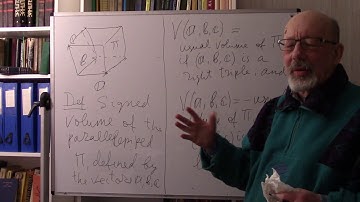 Π
b
a
Def Signed
volume of the
parallelepiped
Π, defined by
the vectors a, b, c
V(a, b, c) =
usual volume of Π
if (a, b, c) is a
right triple, and
V(a, b, c) = -
of Π